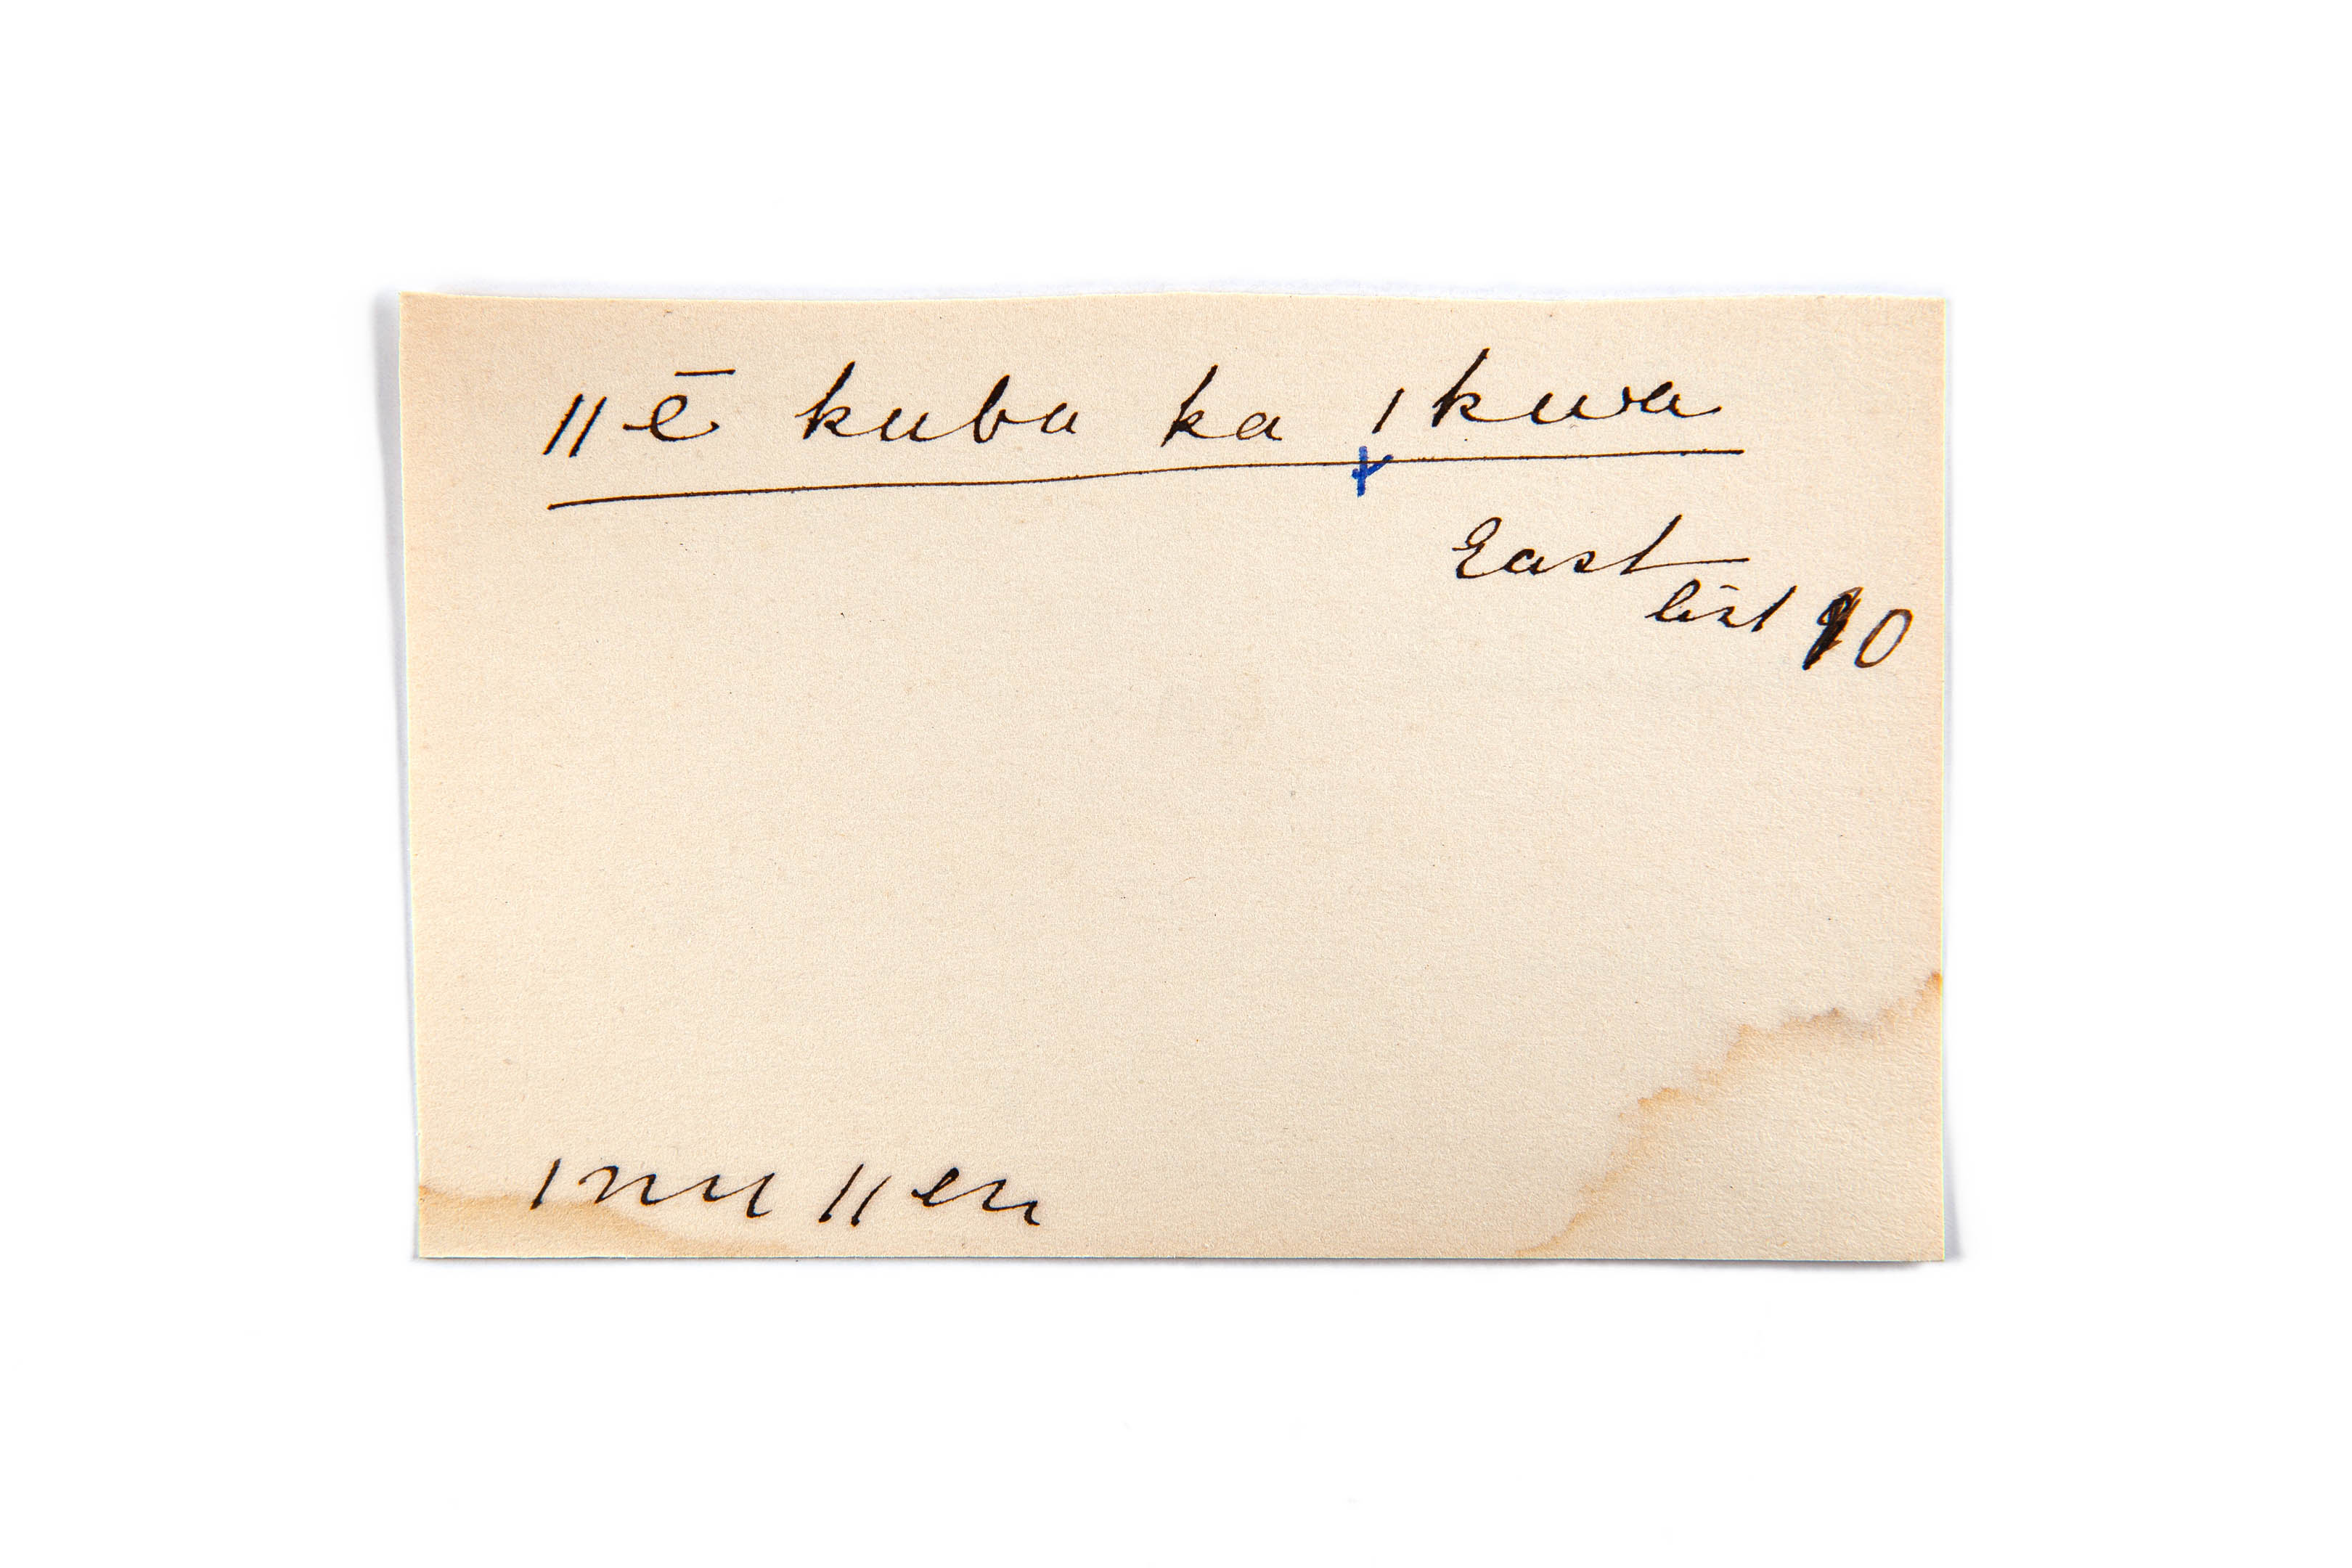 ǁē kuba ka ǀkwa
East
list 10
ǀnu ǁen